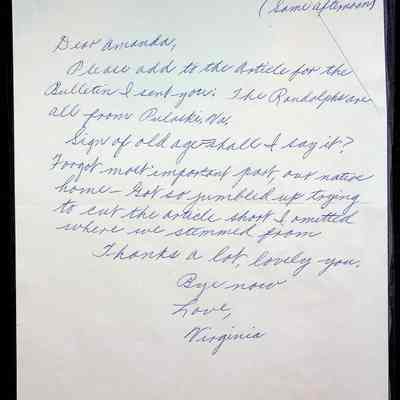 (Same afternoon)
Dear Amanda,
Please add to the article for the
Bulletin I sent you: The Randolphs are
all from Pulaski, Va.
Sign of old age–shall I say it?
Forgot most important part, our native
home – Got so jumbled up trying
to cut the article short I omitted
where we stemmed from
Thanks a lot, lovely you.
Bye now
Love,
Virginia